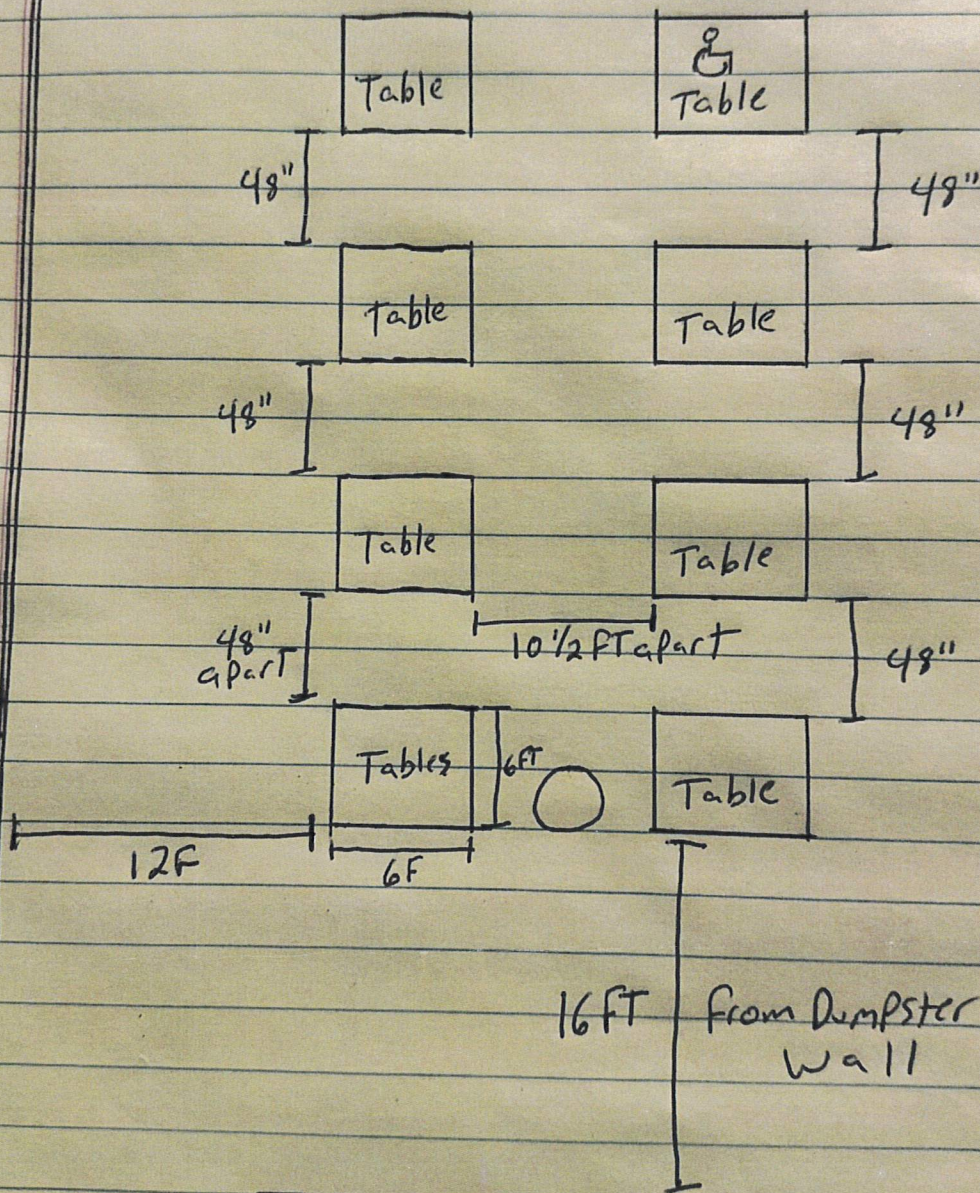 Table
Table
48"
48"
Table
Table
48"
48"
Table
Table
10 1/2 FT apart
48"
apart
48"
Tables
6FT
Table
12F
6F
16FT
From Dumpster
Wall